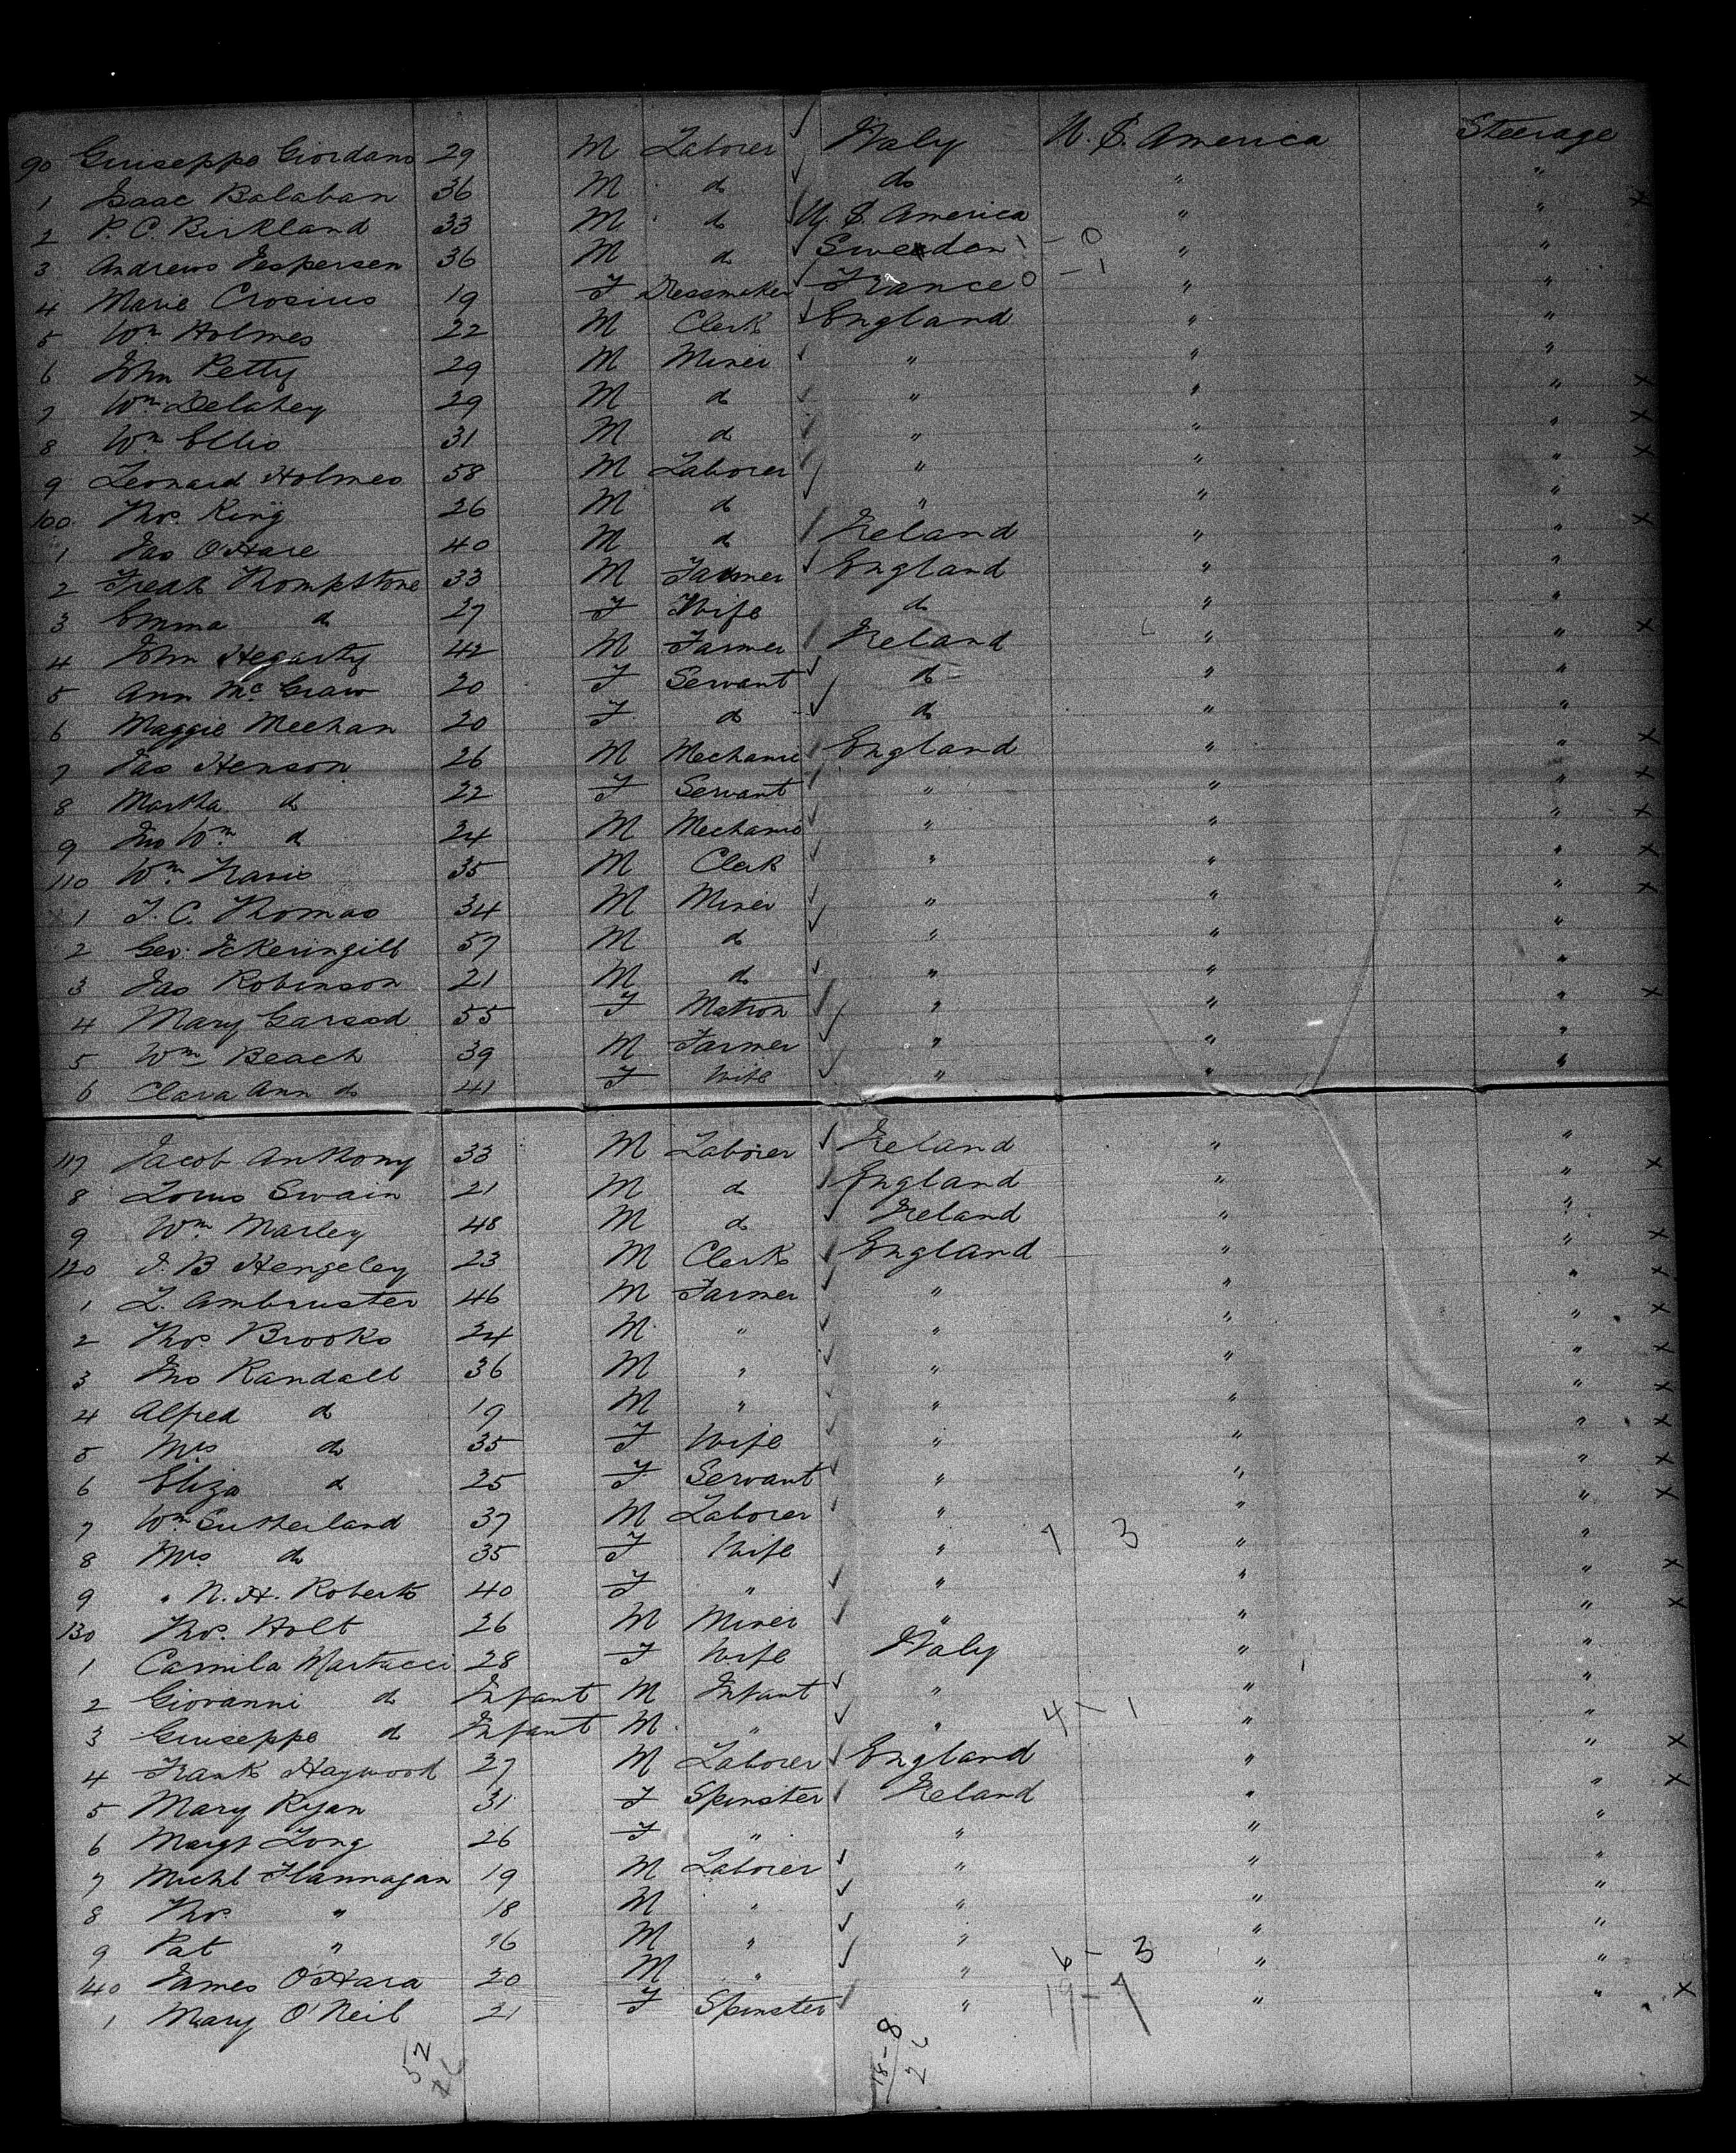 90 Giuseppe Giordano 29 M Laborer ✓ Italy U. S. America Steerage
1 Isaac Balaban 36 M do ✓ do " "
2 P. C. Kirkland 33 M do ✓ U. S. America " " x
3 Andrews Jespersen 36 M do ✓ Sweden 1 - 0 " "
4 Marie Crosius 19 F Dressmaker ✓ France 0 - 1 " "
5 Wm Holmes 22 M Clerk ✓ England " "
6 John Petty 29 M Miner ✓ " " "
7 Wm Delahey 29 M do ✓ " " " x
8 Wm Ellis 31 M do ✓ " " " x
9 Leonard Holmes 58 M Laborer ✓ " " " x
100 Thos. King 26 M do ✓ " " "
1 Jas O'Hare 40 M do / Ireland " " x
2 Fredk Thompstone 33 M Farmer ✓ England " "
3 Emma do 27 F Wife do " "
4 John Hegarty 42 M Farmer / Ireland " " x
5 Ann McGraw 20 F Servant ✓ do " "
6 Maggie Meehan 20 F do ✓ do " "
7 Jas Henson 26 M Mechanic / England " " x
8 Martha do 22 F Servant / " " " x
9 Jno Wm. do 24 M Mechanic ✓ " " " x
110 Wm. 35 M Clerk ✓ " " " x
1 J. C. Thomas 34 M Miner ✓ " " " x
2 Geo. Ickeringill 57 M do ✓ " " "
3 Jas Robinson 21 M do ✓ " " "
4 Mary Garsod 55 F Matron ✓ " " " x
5 Wm Beach 39 M Farmer ✓ " " "
6 Clara Ann do 41 F Wife ✓ " " "
117 Jacob Anthony 33 M Laborer ✓ Ireland " "
8 Louis Swain 21 M do ✓ England " " x
9 Wm Marley 48 M do ✓ Ireland " "
120 J. B Hengeley 23 M Clerk ✓ England " " x
1 L. Ambruster 46 M Farmer ✓ " " " x
2 Thos. Brooks 24 M " ✓ " " " x
3 Jno Randall 36 M " ✓ " " " x
4 Alfred do 19 M " ✓ " " " x
5 Mrs do 35 F Wife ✓ " " " x
6 Eliza do 25 F Servant ✓ " " " x
7 Wm Sutherland 37 M Laborer ✓ " " " x
8 Mrs do 35 F Wife " 7 3 " "
9 " N. H. Roberts 40 F " ✓ " " " x
130 Thos. Holt 26 M Miner ✓ " " " x
1 Camila Martucci 28 F Wife Italy " "
2 Giovanni do Infant M Infant ✓ " " "
3 Giuseppe do Infant M " ✓ " 4 - 1 " "
4 Frank Haywood 27 M Laborer ✓ England " " x
5 Mary Ryan 31 F Spinster / Ireland " " x
6 Margt Long 26 F " " " "
7 Michl Flannagan 19 M Laborer ✓ " " "
8 Thos. " 18 M " ✓ " " "
9 Pat " 16 M " ✓ " 6 - 3 " "
40 James O'Hara 20 M " ✓ " 19 - 7 " "
1 Mary O'Neil 21 F Spinster ✓ " " " x
52
18 - 8
26